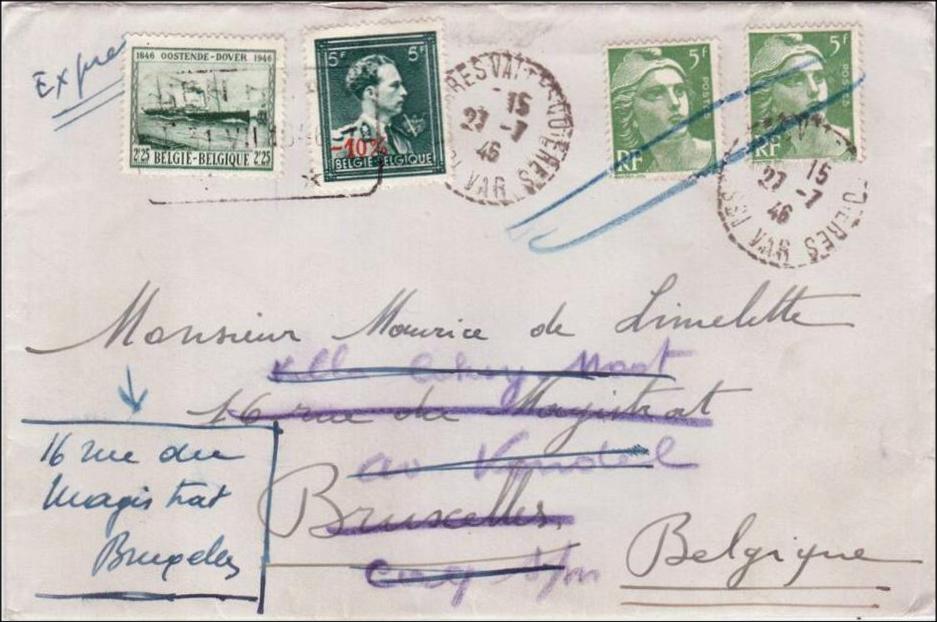 Expres
1846 OOSTENDE-DOVER 1946
2f25 BELGIE-BELGIQUE 2f25
5F 5F
-10%
BELGIE-BELGIQUE
15
27 -7
46
VAR
5f
POSTES
RF
5f
POSTES
RF
15
27 -7
46
VAR
Monsieur Maurice de Limelette
16 rue du Magistrat
av
Bruxelles,
Belgique
16 rue du
Magistrat
Bruxelles